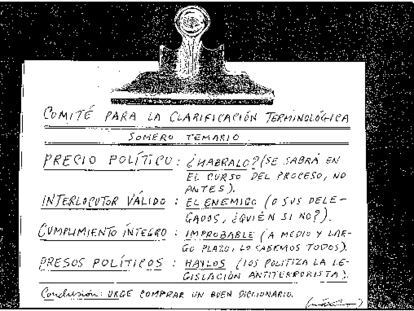 COMITÉ PARA LA CLARIFICACIÓN TERMINOLÓGICA
SOMERO TEMARIO
PRECIO POLÍTICO: ¿HABRALO? (SE SABRÁ EN
EL CURSO DEL PROCESO, NO
ANTES).
INTERLOCUTOR VÁLIDO: EL ENEMIGO (O SUS DELE-
GADOS, ¿QUIÉN SI NO?).
CUMPLIMIENTO ÍNTEGRO: IMPROBABLE (A MEDIO Y LAR-
GO PLAZO, LO SABEMOS TODOS).
PRESOS POLÍTICOS: HAYLOS (LOS POLITIZA LA LE-
GISLACIÓN ANTITERRORISTA).
Conclusión: URGE COMPRAR UN BUEN DICCIONARIO.